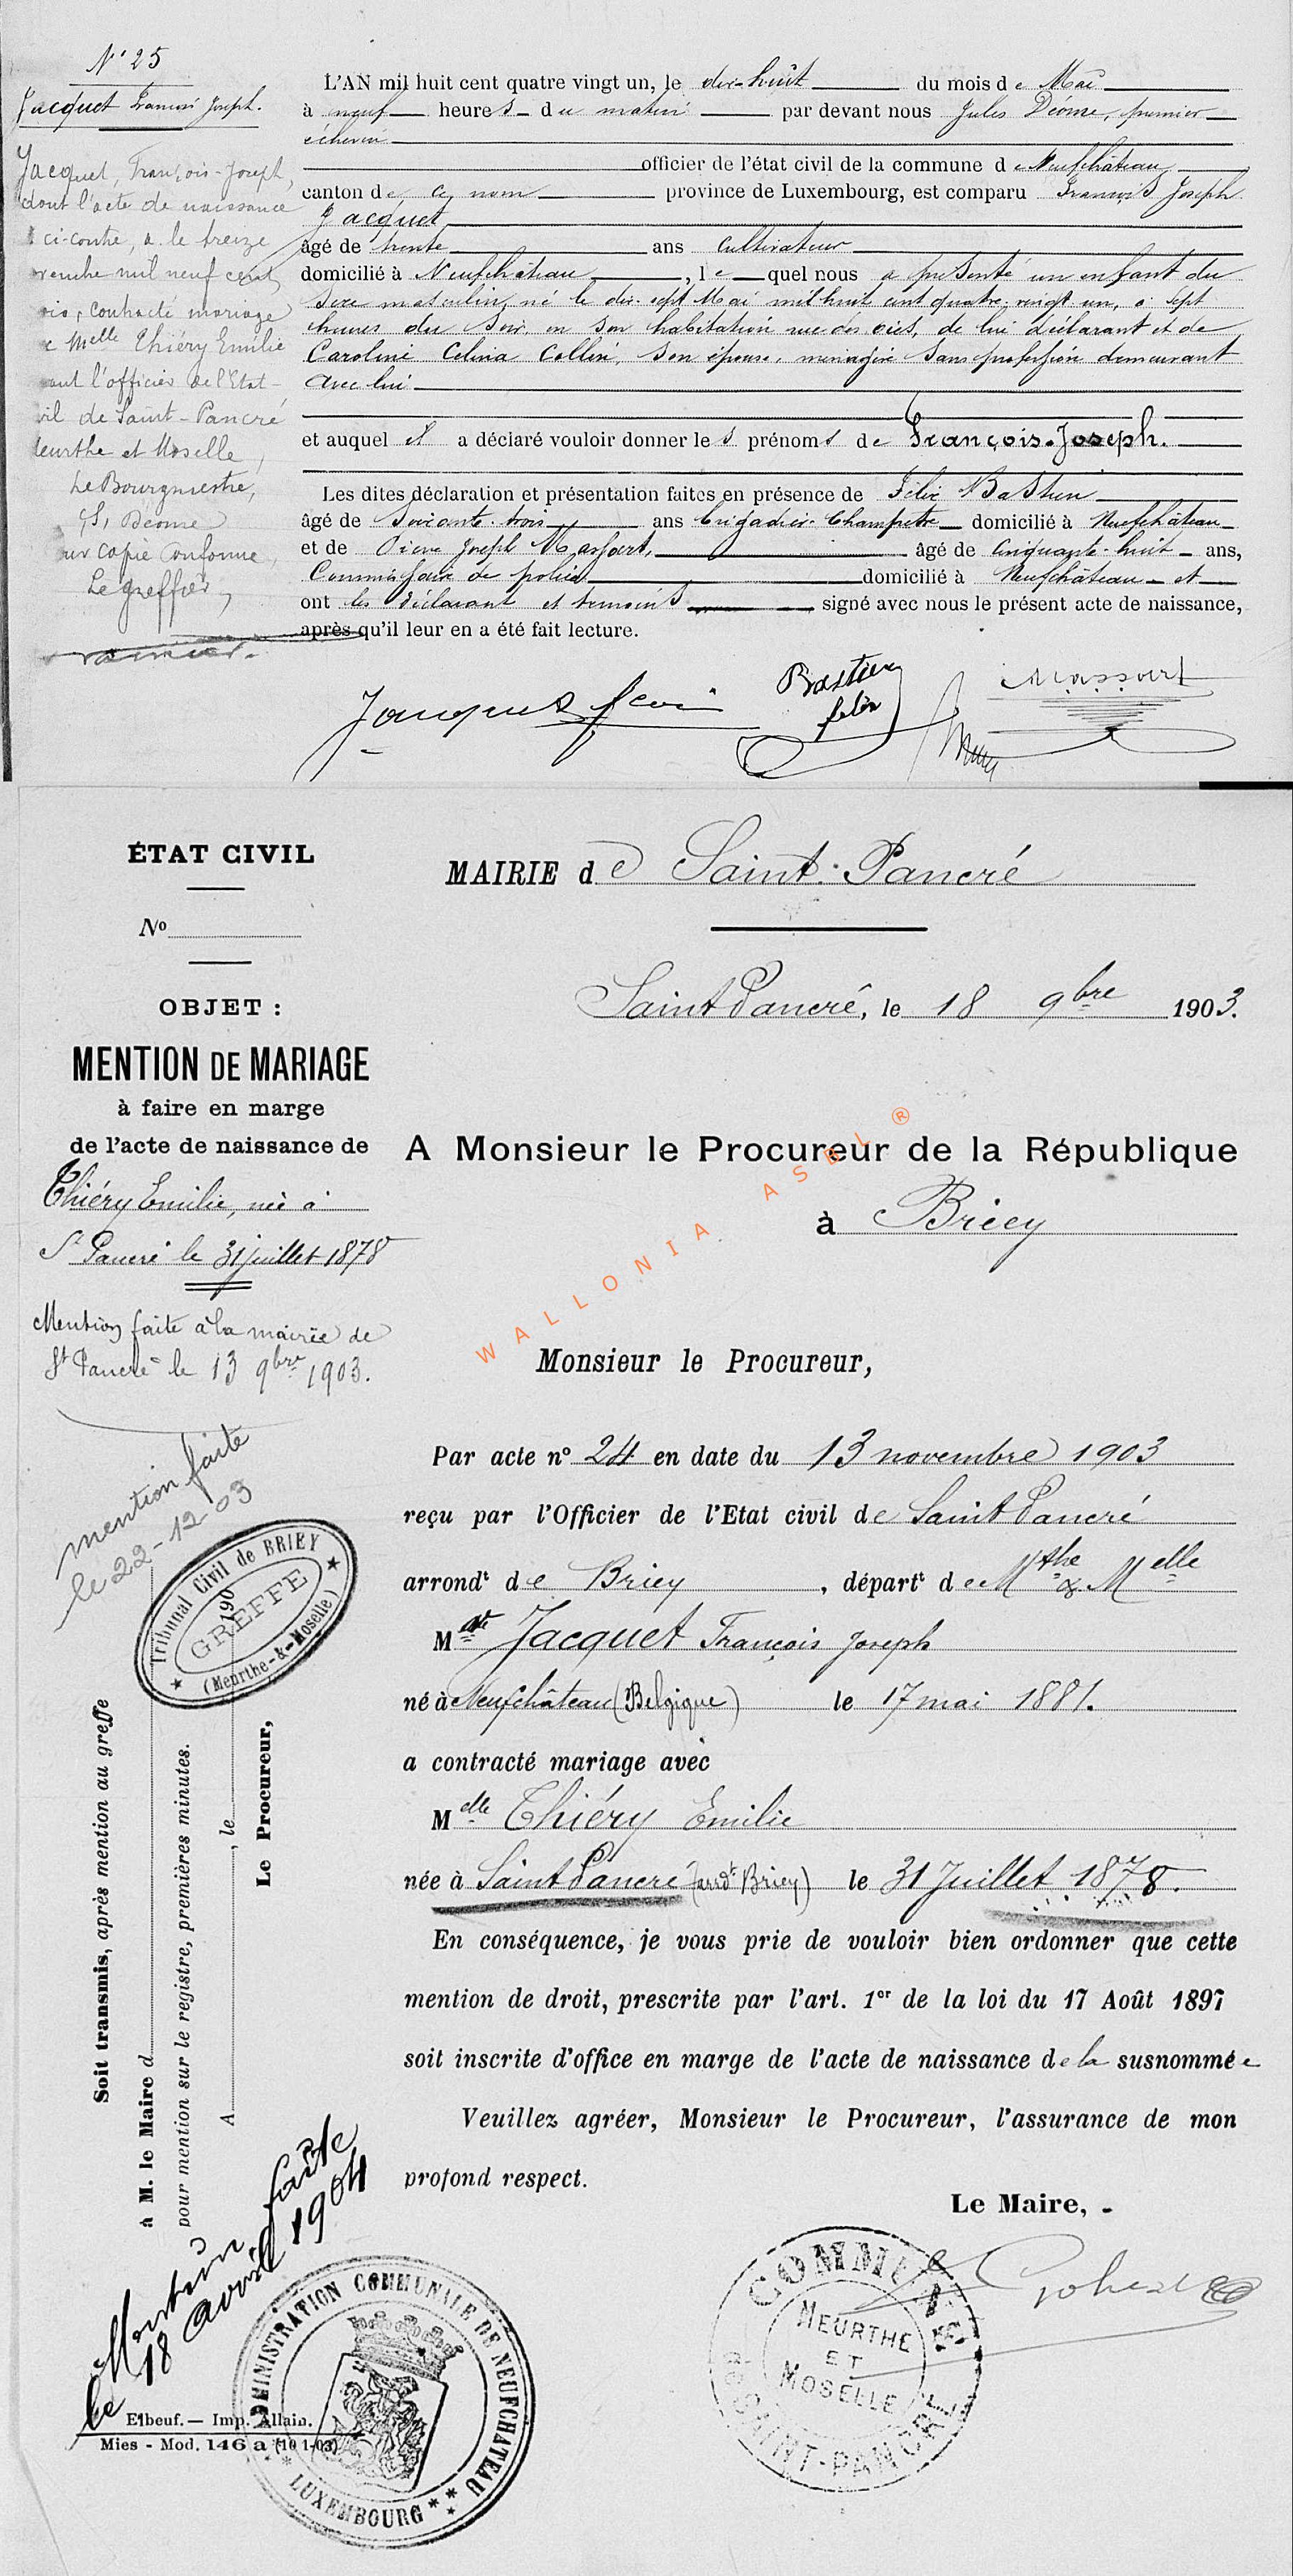 N° 25
Jacquet François Joseph.
L'AN mil huit cent quatre vingt un, le dix-huit du mois de Mai
à neuf heures du matin par devant nous Jules Déome, premier
échevin
officier de l'état civil de la commune de Neufchâteau
canton de ce nom province de Luxembourg, est comparu François Joseph
Jacquet
âgé de trente ans cultivateur
domicilié à Neufchâteau, lequel nous a présenté un enfant du
sexe masculin, né le dix-sept Mai mil huit cent quatre vingt un, à sept
heures du soir en son habitation rue des oies, de lui déclarant et de
Caroline Celina Collin, son épouse, ménagère sans profession demeurant
avec lui
et auquel il a déclaré vouloir donner les prénoms de François-Joseph.
Les dites déclaration et présentation faites en présence de Félix Bastien
âgé de soixante-trois ans brigadier-champêtre domicilié à Neufchâteau
et de Pierre Joseph Massart, âgé de cinquante-huit ans,
Commissaire de police domicilié à Neufchâteau et
ont les déclarant et témoins signé avec nous le présent acte de naissance,
après qu'il leur en a été fait lecture.
Jacquet, François-Joseph,
dont l'acte de naissance
ci-contre, a le treize
vembre mil neuf cent
ois, contracté mariage
c Melle Thiéry Emilie
ant l'officier de l'Etat-
vil de Saint-Pancré
eurthe et Moselle,
Le Bourgmestre,
(S) Déome
ur copie conforme,
Le greffier,
Bastien
félix
Massart
ÉTAT CIVIL
No
OBJET :
MENTION DE MARIAGE
à faire en marge
de l'acte de naissance de
Thiéry Emilie, née à
St Pancré le 31 juillet 1878
Mention faite à la mairie de
St Pancré le 13 9bre 1903.
mention faite
le 22-12-03
Tribunal Civil de BRIEY
GREFFE
190
(Meurthe-&-Moselle)
Soit transmis, après mention au greffe
à M. le Maire d
pour mention sur le registre, premières minutes.
A , le
Le Procureur,
Mention faite
le 18 avril 1904
Elbeuf. — Imp. Allain.
Mies - Mod. 146 a (10 1-03)
ADMINISTRATION COMMUNALE DE NEUFCHATEAU
LUXEMBOURG
MAIRIE de Saint-Pancré
Saint Pancré, le 18 9bre 1903.
A Monsieur le Procureur de la République
à Briey
WALLONIA ASBL ®
Monsieur le Procureur,
Par acte n° 24 en date du 13 novembre 1903
reçu par l'Officier de l'Etat civil de Saint Pancré
arrondt de Briey, départt de Mthe & Melle
M Jacquet François Joseph
né à Neufchâteau (Belgique) le 17 mai 1881.
a contracté mariage avec
Melle Thiéry Emilie
née à Saint Pancré (arrdt Briey) le 31 Juillet 1878.
En conséquence, je vous prie de vouloir bien ordonner que cette
mention de droit, prescrite par l'art. 1er de la loi du 17 Août 1897
soit inscrite d'office en marge de l'acte de naissance de la susnommée
Veuillez agréer, Monsieur le Procureur, l'assurance de mon
profond respect.
Le Maire,
COMMUNE
MEURTHE
ET
MOSELLE
DE SAINT-PANCRÉ